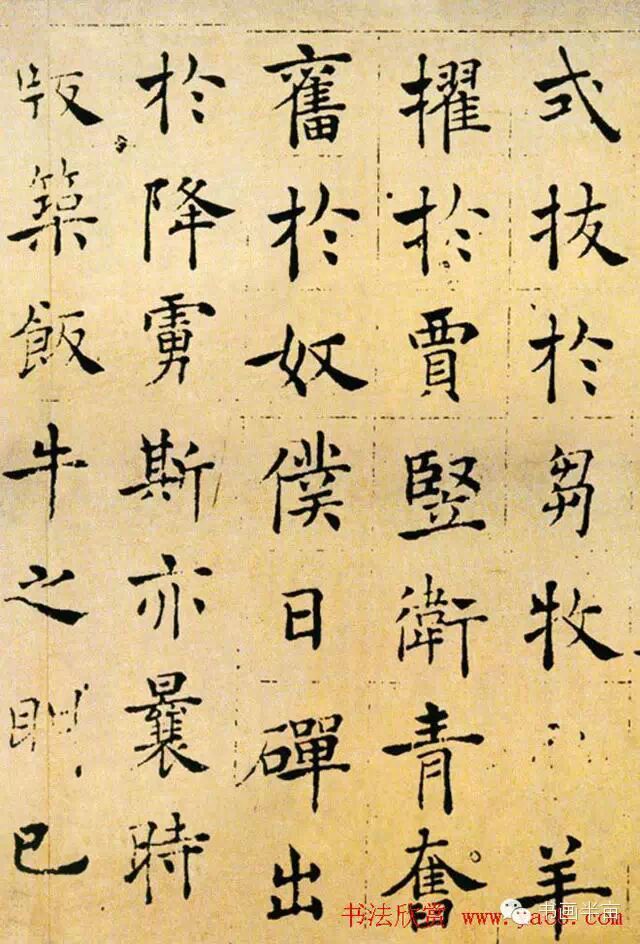 式拔於芻牧羊
擢於賈竪衛青奮
奮於奴僕日磾出
於降虜斯亦曩時
版築飯牛之已
书法欣赏 www.yac8.com
书画半亩